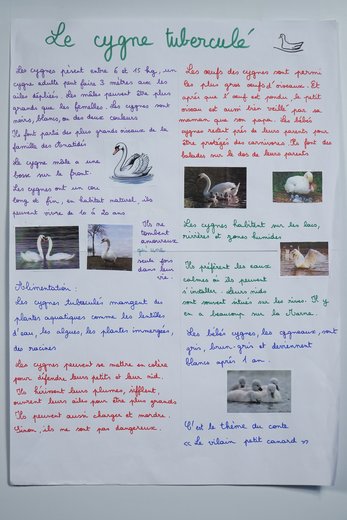 Le cygne tuberculé
Les cygnes pèsent entre 6 et 15 kg, un
cygne adulte peut faire 3 mètres avec les
ailes dépliées. Les mâles peuvent être plus
grands que les femelles. Les cygnes sont
noirs, blancs, ou des deux couleurs
Ils font partis des plus grands oiseaux de la
famille des Anatidés
Le cygne mâle a une
bosse sur le front.
Les cygnes ont un cou
long et fin, en habitat naturel, ils
peuvent vivre de 10 à 20 ans
Ils ne
tombent
amoureux
seule fois
dans leur
vie.
Alimentation :
Les cygnes tuberculés mangent des
plantes aquatiques comme les lentilles
d'eau, les algues, les plantes immergées,
des racines
Les cygnes peuvent se mettre en colère
pour défendre leurs petits et leur nid.
Ils hérissent leurs plumes, sifflent,
ouvrent leurs ailes pour être plus grands
Ils peuvent aussi charger et mordre.
Sinon, ils ne sont pas dangereux.
Les œufs des cygnes sont parmi
les plus gros œufs d'oiseaux. Et
après que l'œuf est pondu, le petit
oiseau est aussi bien veillé par sa
maman que son papa. Les bébés
cygnes restent près de leurs parents pour
être protégés des carnivores. Ils font des
balades sur le dos de leurs parents
Les cygnes habitent sur les lacs,
rivières et zones humides
Ils préfèrent les eaux
calmes où ils peuvent
s'installer. Leurs nids
sont souvent situés sur les rives. Il y
en a beaucoup sur la Marne.
Les bébés cygnes, les cygneaux, sont
gris, brun-gris et deviennent
blancs après 1 an.
C'est le thème du conte
« Le vilain petit canard »